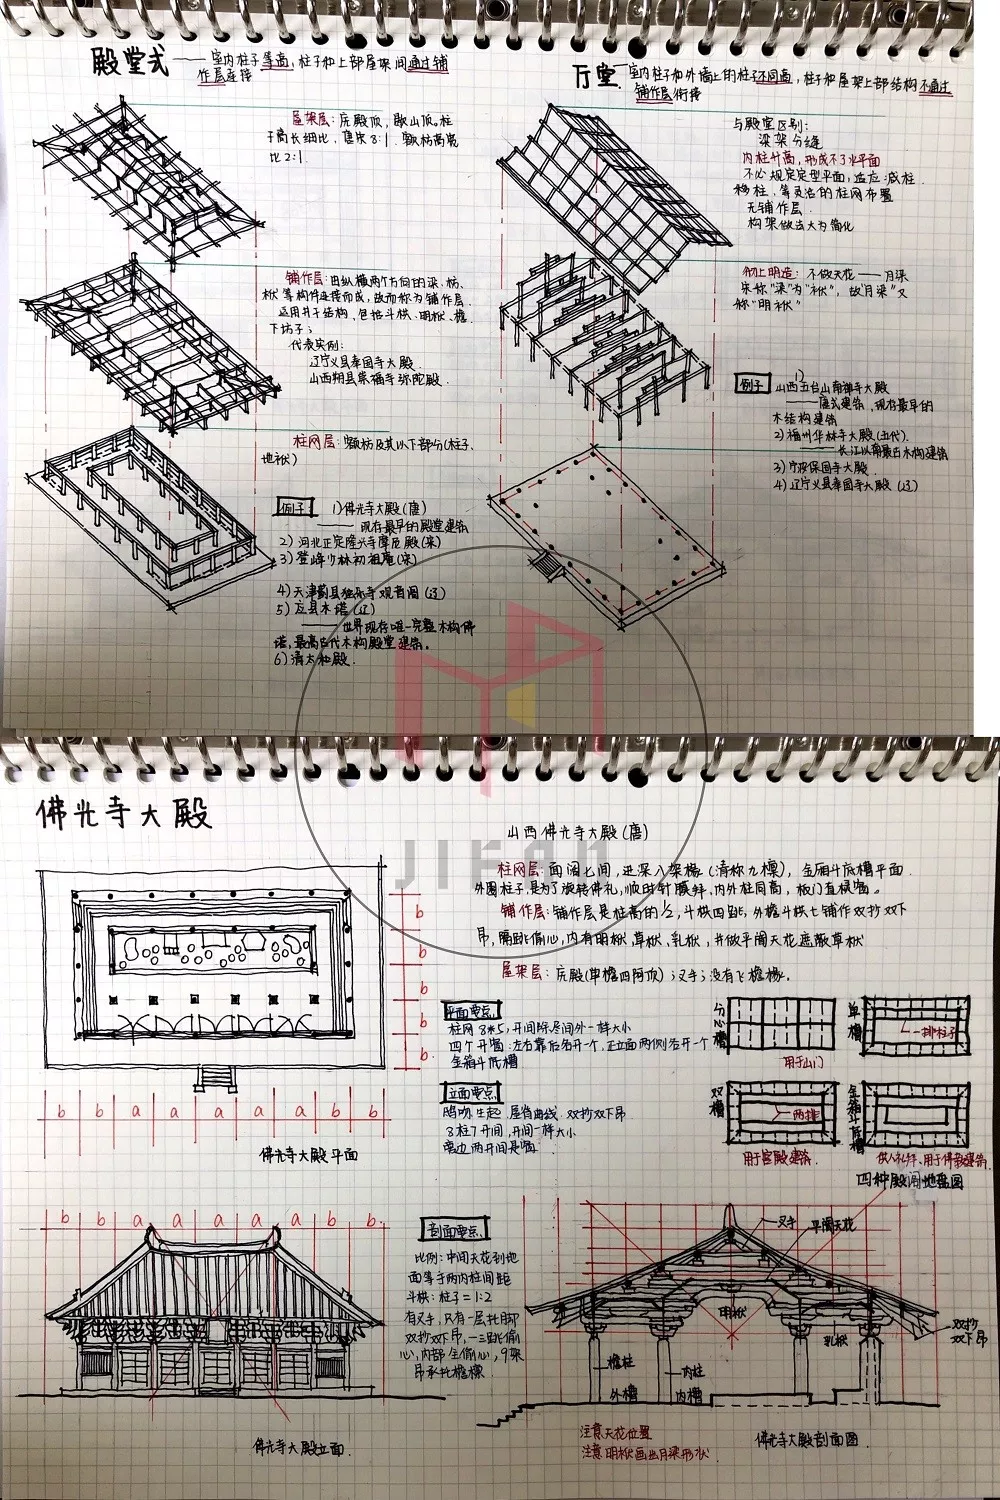 殿堂式 —— 室内柱子等高,柱子和上部屋架间通过铺
作层连接
屋架层:庑殿顶,歇山顶。柱
子高长细比,唐宋8:1.额枋高宽
比2:1.
铺作层:由纵横两个方向的梁、枋、
栿等构件连接而成,故而称为铺作层.
运用井字结构,包括斗栱、明栿、檐
下坊子;
代表实例:
辽宁义县奉国寺大殿
山西朔县崇福寺弥陀殿
柱网层:额枋及其以下部分(柱子、
地栿)
例子 1)佛光寺大殿(唐)
—— 现存最早的殿堂建筑
2)河北正定隆兴寺摩尼殿(宋)
3)登峰少林初祖庵(宋)
4)天津蓟县独乐寺观音阁(辽)
5)应县木塔(辽)
—— 世界现存唯一完整木构佛
塔,最高古代木构殿堂建筑。
6)清太和殿.
厅堂 — 室内柱子和外墙上的柱子不同高,柱子和屋架上部结构不通过
铺作层衔接
与殿堂区别:
梁架分缝
内柱升高,形成不了水平面
不必规定定型平面,适应减柱.
移柱,等灵活的柱网布置
无铺作层.
构架做法大为简化
彻上明造:不做天花——月梁
宋称"梁"为"栿",故"月梁"又
称"明栿"
例子 1)
山西五台山南禅寺大殿
—— 唐式建筑,现存最早的
木结构建筑
2)福州华林寺大殿(五代).
—— 长江以南最古木构建筑
3)宁波保国寺大殿.
4)辽宁义县奉国寺大殿(辽)
JIFAN
佛光寺大殿
山西佛光寺大殿(唐)
柱网层:面阔七间,进深八架椽(清称九檩),金厢斗底槽平面.
外圈柱子是为了旋转佛礼,顺时针膜拜,内外柱同高,板门直棂窗。
铺作层:铺作层是柱高的1/2,斗栱四跳,外檐斗栱七铺作双抄双下
昂,隔跳偷心,内有明栿草栿、乳栿,并做平闇天花遮蔽草栿
屋架层:庑殿(单檐四阿顶);叉手;没有飞檐椽。
b
b
b
b
b a a a a a b b
佛光寺大殿平面
平面要点
柱网8*5,开间除尽间外一样大小
四个开窗:左右靠后各开一个,正立面两侧各开一个
金箱斗底槽
立面要点
鸱吻 生起 屋脊曲线 双抄双下昂
8柱7开间,开间一样大小
离边两开间是窗
分心槽
用于山门
单槽
一排柱子
双槽
两排
用于宫殿建筑.
金箱斗底槽
供人礼拜、用于佛教建筑.
四种殿阁地盘图
b b a a a a a b b
佛光寺大殿立面.
剖面要点
比例:中间天花到地
面等于两内柱间距
斗栱:柱子=1:2
有叉手,只有一层托脚
双抄双下昂,一三跳偷
心,内部全偷心,9架
昂承托檐檩
叉手
平闇天花
明栿
乳栿
双抄
双下昂
檐柱
内柱
外槽
内槽
注意天花位置
注意明栿画出月梁形状
佛光寺大殿剖面图.